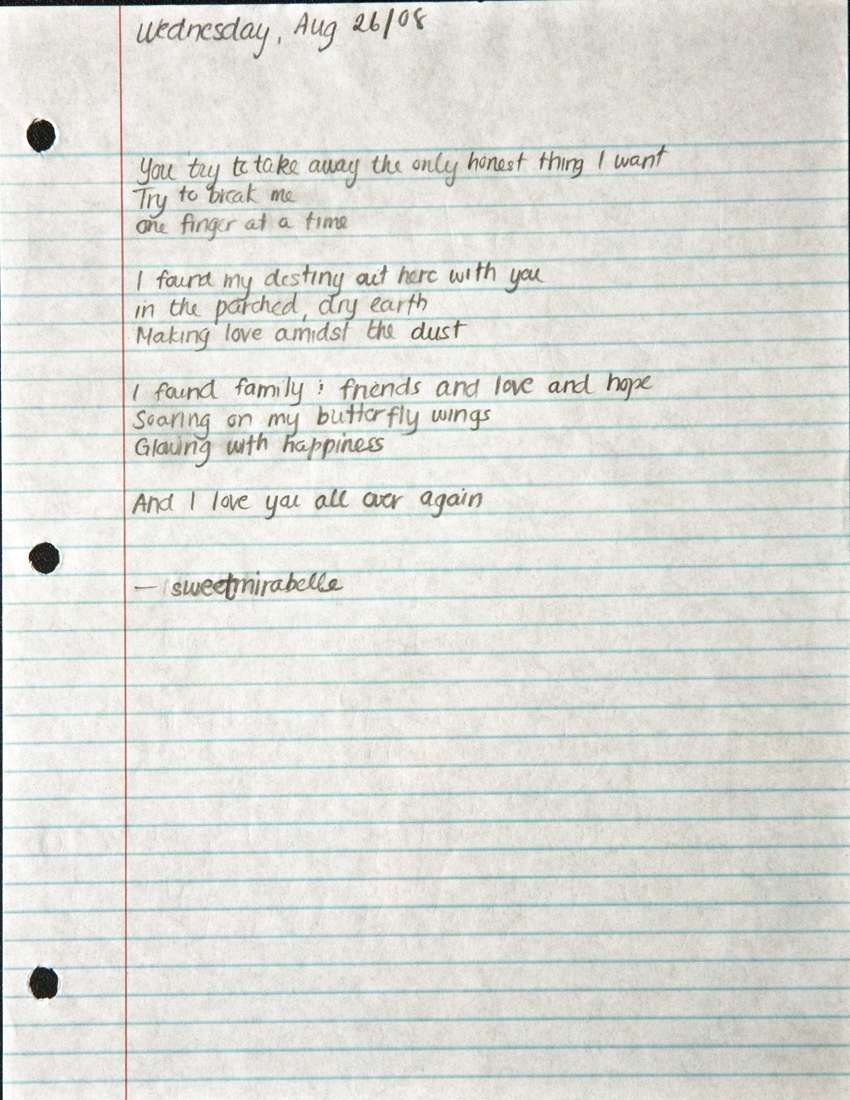 Wednesday, Aug 26/08
You try to take away the only honest thing I want
Try to break me
one finger at a time
I found my destiny out here with you
in the parched, dry earth
Making love amidst the dust
I found family & friends and love and hope
Soaring on my butterfly wings
Glowing with happiness
And I love you all over again
— sweetmirabelle